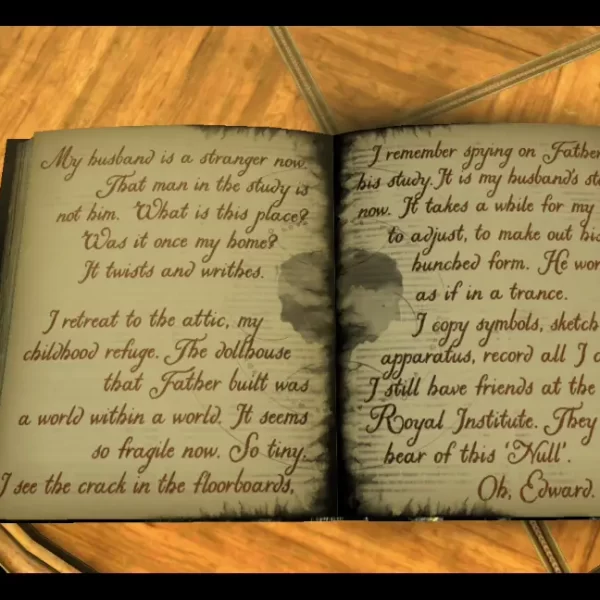 My husband is a stranger now.
That man in the study is
not him. What is this place?
Was it once my home?
It twists and writhes.
I retreat to the attic, my
childhood refuge. The dollhouse
that Father built was
a world within a world. It seems
so fragile now. So tiny.
I see the crack in the floorboards,
I remember spying on Father
his study. It is my husband's
now. It takes a while for my
to adjust, to make out his
hunched form. He
as if in a trance.
I copy symbols, sketch
apparatus, record all I
I still have friends at the
Royal Institute. They
hear of this 'Null'.
Oh, Edward.